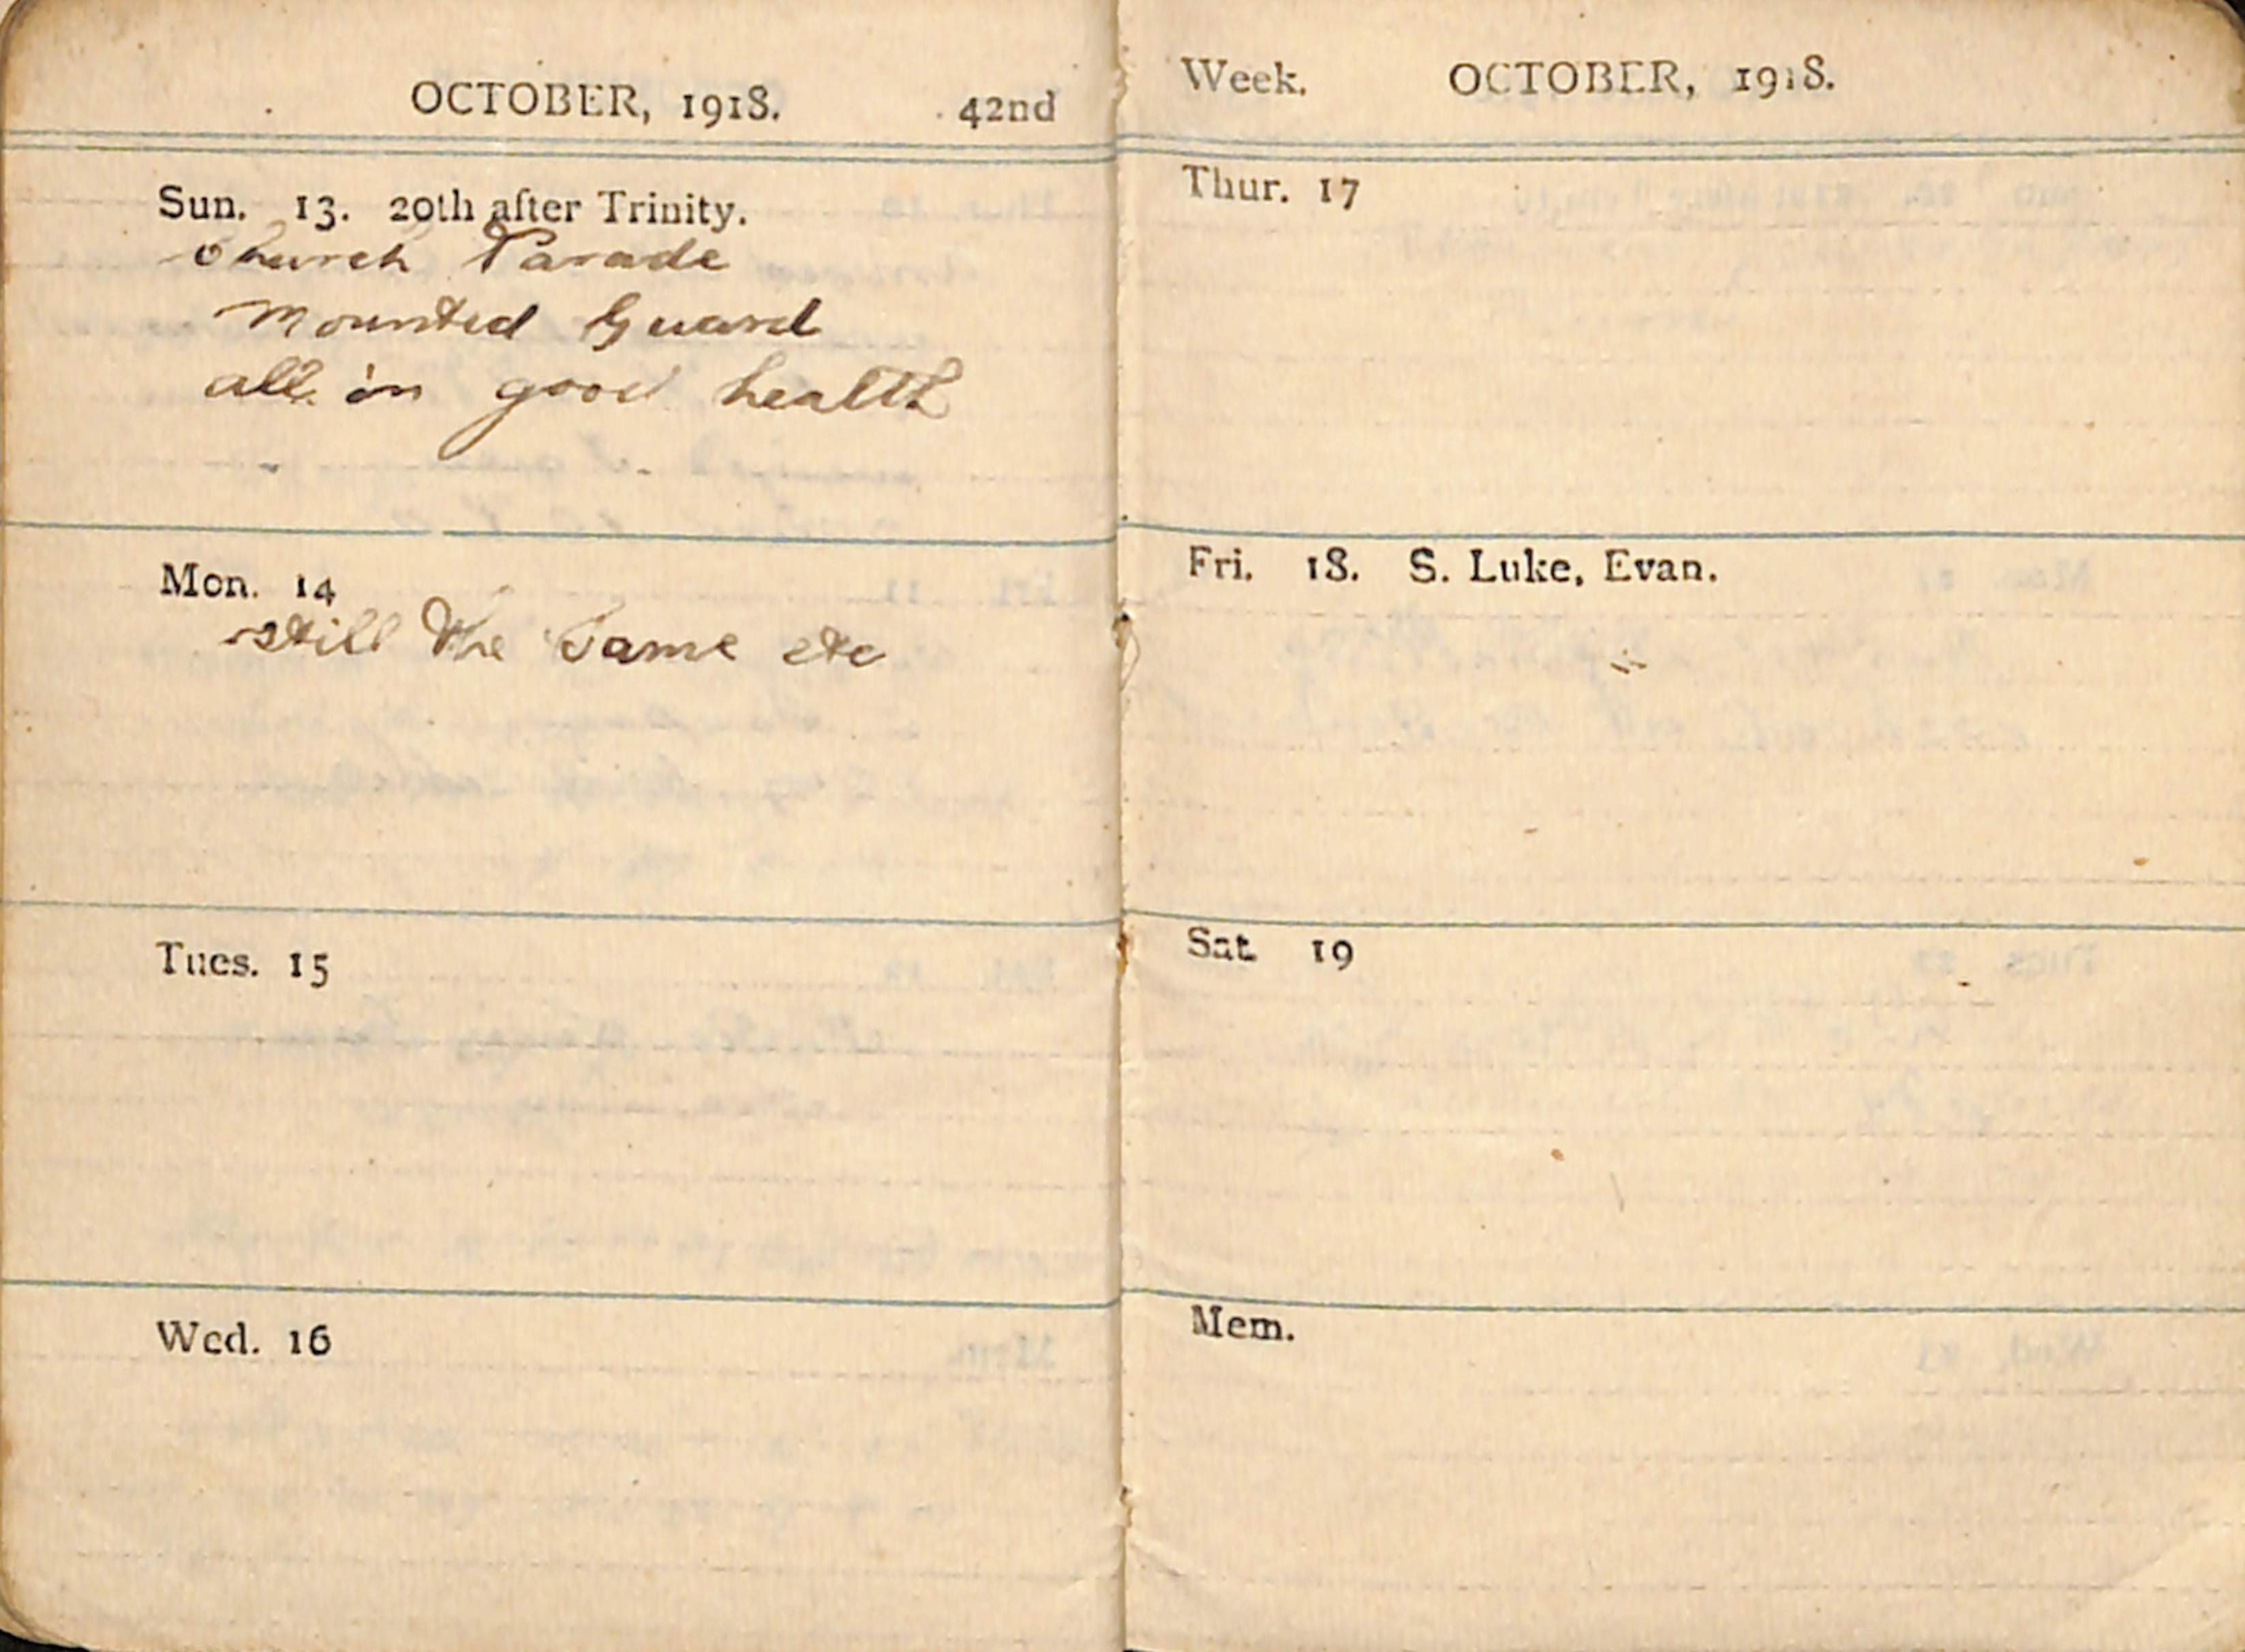 OCTOBER, 1918. 42nd
Sun. 13. 20th after Trinity.
Church Parade
Mounted Guard
all in good health
Mon. 14
still the same etc
Tues. 15
Wed. 16
Week. OCTOBER, 1918.
Thur. 17
Fri. 18. S. Luke, Evan.
Sat. 19
Mem.